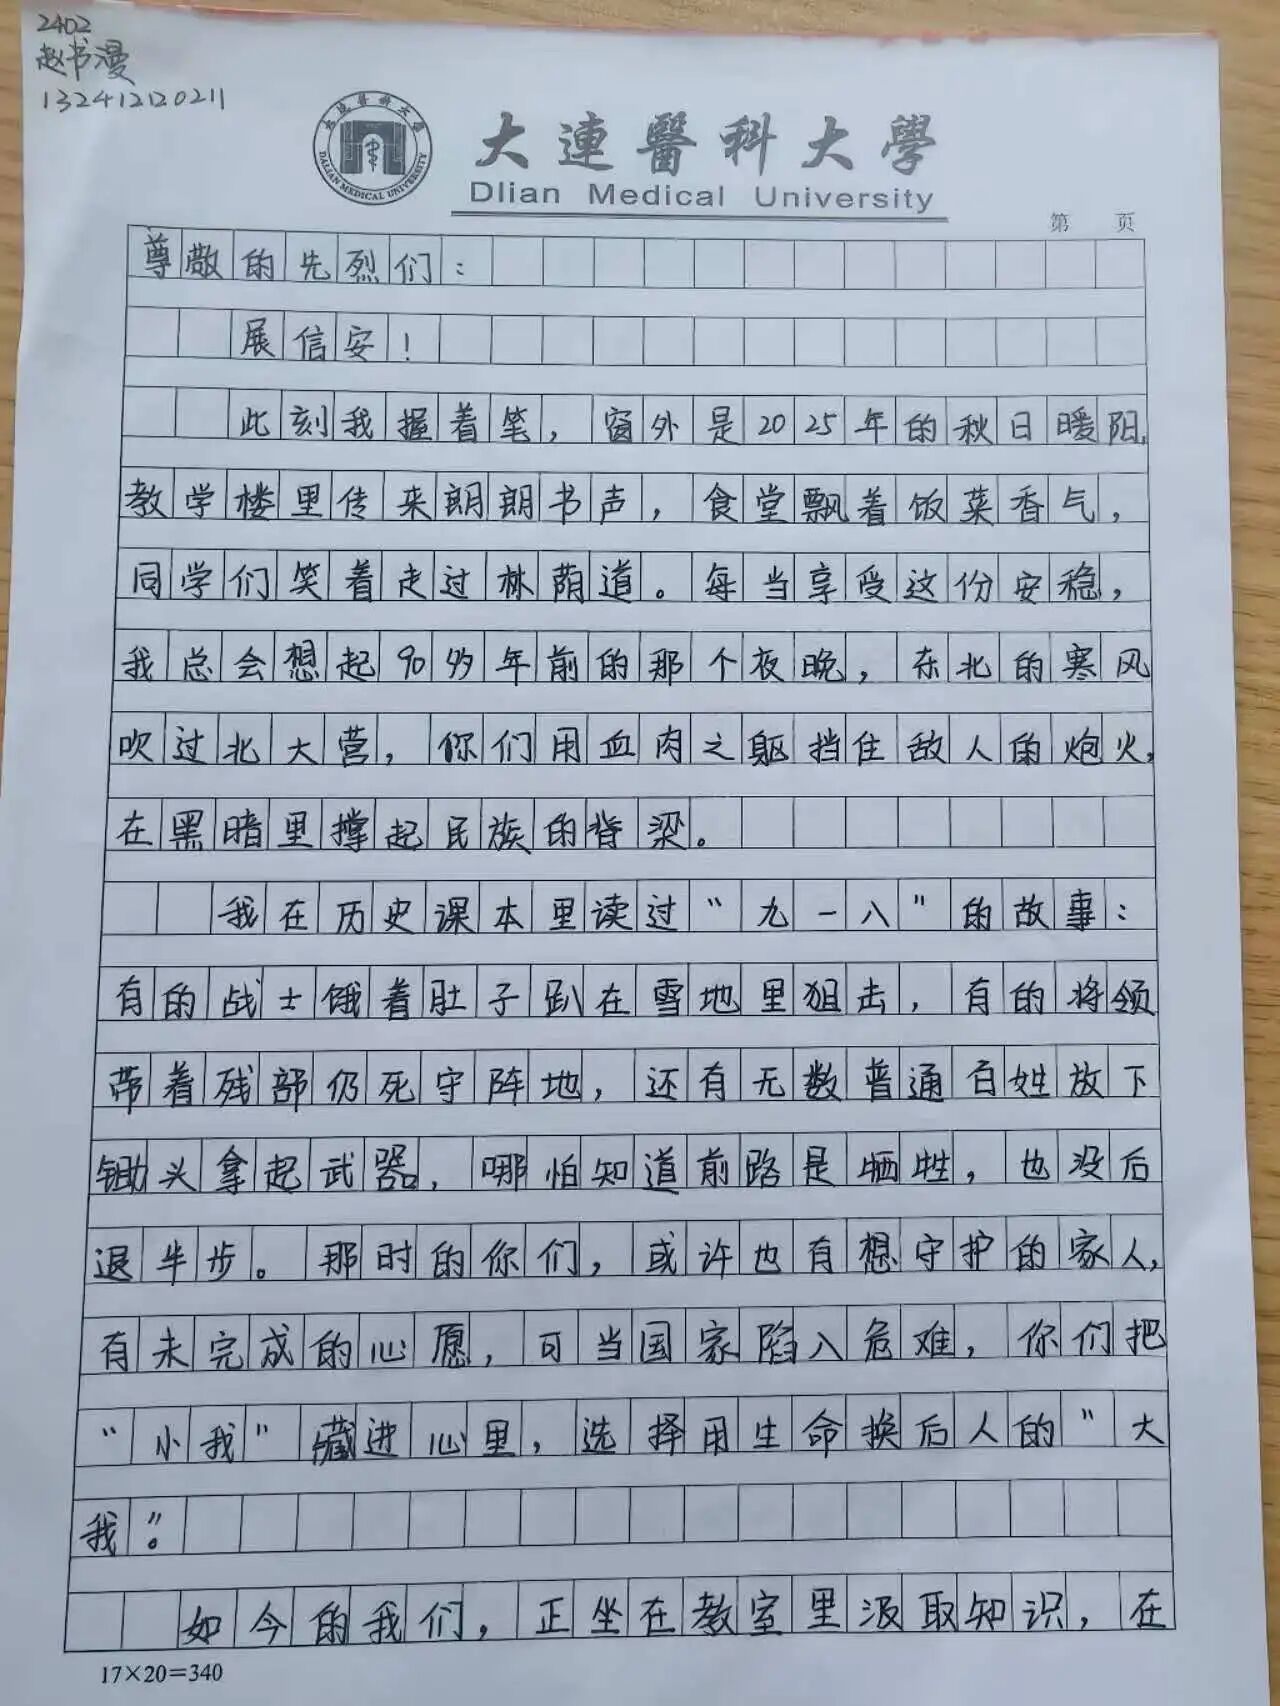 2402
赵书漫
132412120211
大連醫科大學
DALIAN MEDICAL UNIVERSITY
大連醫科大學
Dlian Medical University
第 页
尊敬的先烈们：
展信安！
此刻我握着笔，窗外是2025年的秋日暖阳，
教学楼里传来朗朗书声，食堂飘着饭菜香气，
同学们笑着走过林荫道。每当享受这份安稳，
我总会想起90多年前的那个夜晚，东北的寒风
吹过北大营，你们用血肉之躯挡住敌人的炮火，
在黑暗里撑起民族的脊梁。
我在历史课本里读过“九一八”的故事：
有的战士饿着肚子趴在雪地里狙击，有的将领
带着残部仍死守阵地，还有无数普通百姓放下
锄头拿起武器，哪怕知道前路是牺牲，也没后
退半步。那时的你们，或许也有想守护的家人，
有未完成的心愿，可当国家陷入危难，你们把
“小我”藏进心里，选择用生命换后人的“大
我”。
如今的我们，正坐在教室里汲取知识，在
17×20=340